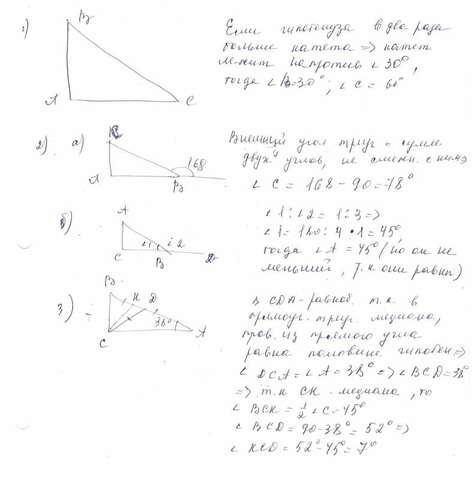 1)
В
А
С
Если гипотенуза в два раза
больше катета => катет
лежит напротив ∠ 30°,
тогда ∠ В=30°; ∠ С = 60°
2) а)
С
А
В
168
Внешний угол треуг = сумме
двух углов, не смежн. с ним =>
∠ С = 168 - 90 = 78°
б)
А
С
В
1
2
D
∠1 : ∠2 = 1 : 3 =>
∠1 = 180 : 4 • 1 = 45°
тогда ∠ А = 45° (но он не
меньший, т.к они равны)
3)
В
К
D
38°
С
А
В CDA - равноб. т.к в
прямоуг. треуг. медиана,
пров. из прямого угла
равна половине гипотен =>
∠ DCA = ∠ A = 38° => ∠ BCD = 38°
=> т.к CK - медиана, то
∠ BCK = 1/2 ∠ C = 45°
∠ BCD = 90 - 38° = 52° =>
∠ KCD = 52° - 45° = 7°